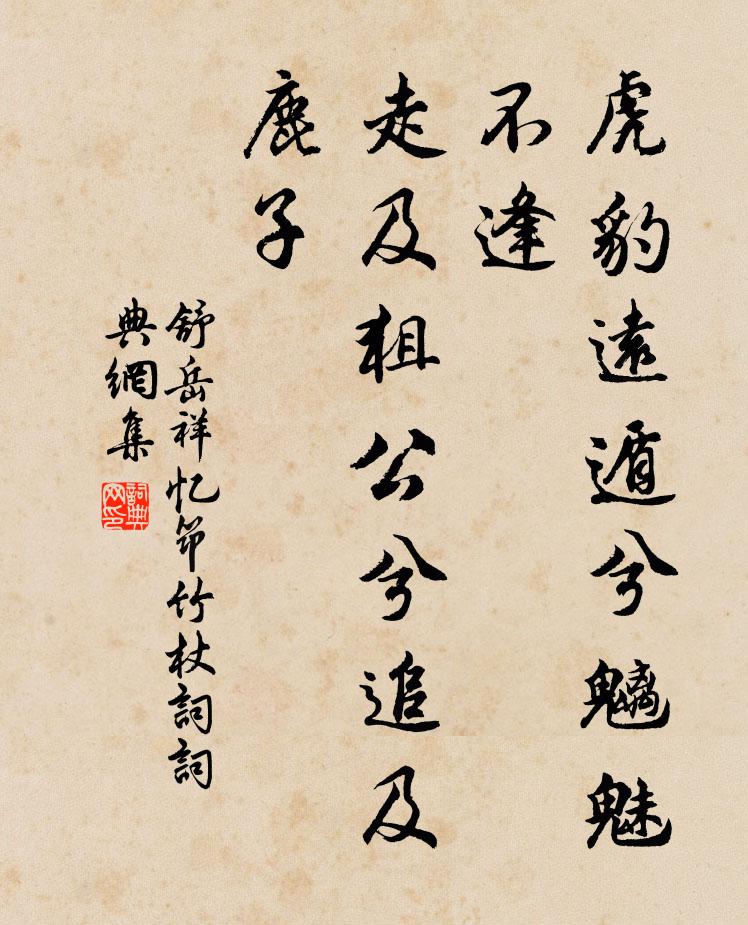 虎豹遠遁兮魑魅
不逢
走及狙公兮追及
鹿子
舒岳祥忆筇竹杖詞詞
典網集
詞典
网印